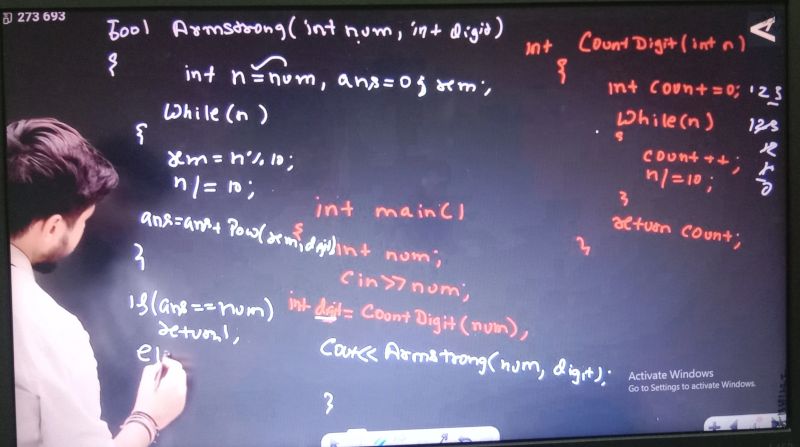 273 693
bool Armstrong(int num, int digit)
{
int n=num, ans=0, rem;
while(n)
{
rem = n%10;
n/= 10;
ans=ans+ Pow(rem,digit)
}
if(ans==num)
return 1;
el
int CountDigit(int n)
{
int count=0;
while(n)
{
count++;
n/=10;
}
return count;
}
123
int main()
{
int num;
cin>>num;
int digit= CountDigit(num);
Cout<< Armstrong(num, digit);
}
Activate Windows
Go to Settings to activate Windows.